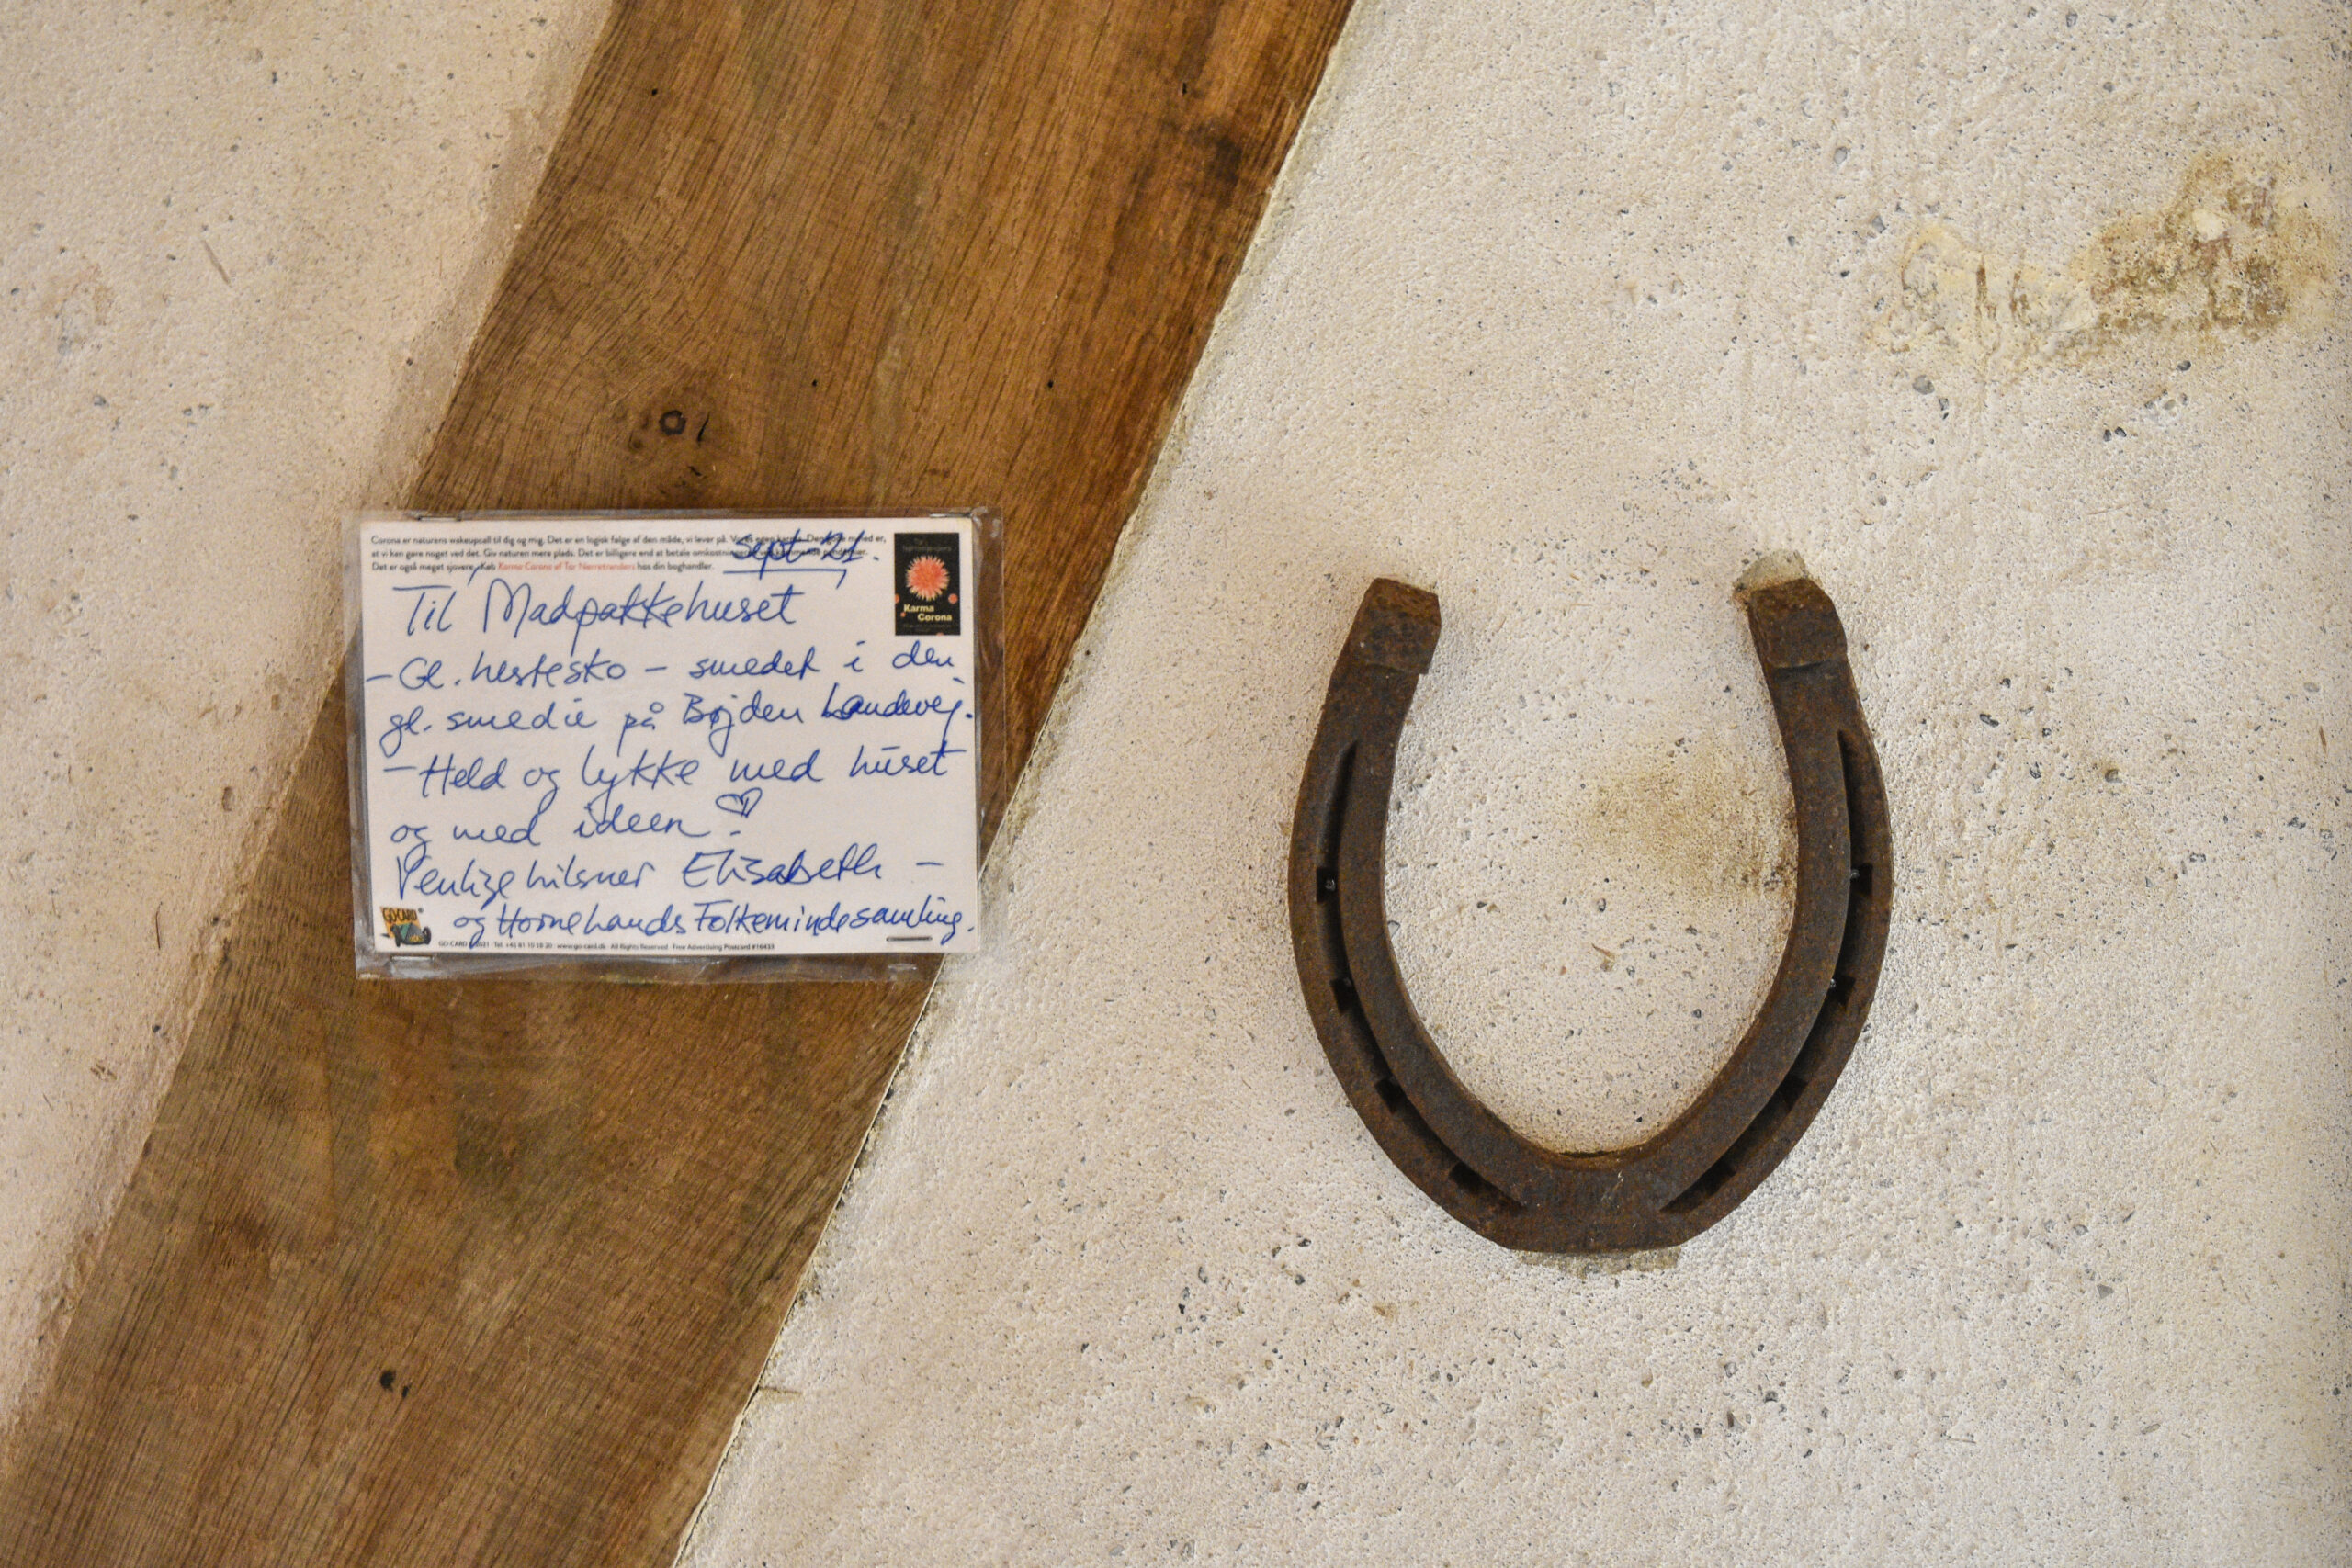 Corona er naturens wakeupcall til dig og mig. Det er en logisk følge af den måde, vi lever på.
at vi kan gøre noget ved det. Giv naturen mere plads. Det er billigere end at betale
Det er også meget sjovere. Køb Karma Corona af Tor Nørretranders hos din boghandler.
sept 21.
Karma
Corona
Til Madpakkehuset
- Gl. hestesko - smedet i den
gl. smedie på Bøjden Landevej.
- Held og lykke med huset
og med ideen!
Venlige hilsner Elisabeth -
og Hornelands Folkemindesamling.
GO-CARD
GO-CARD © 2021 · Tel. +45 81 10 18 20 · www.go-card.dk · All Rights Reserved · Free Advertising Postcard #16433